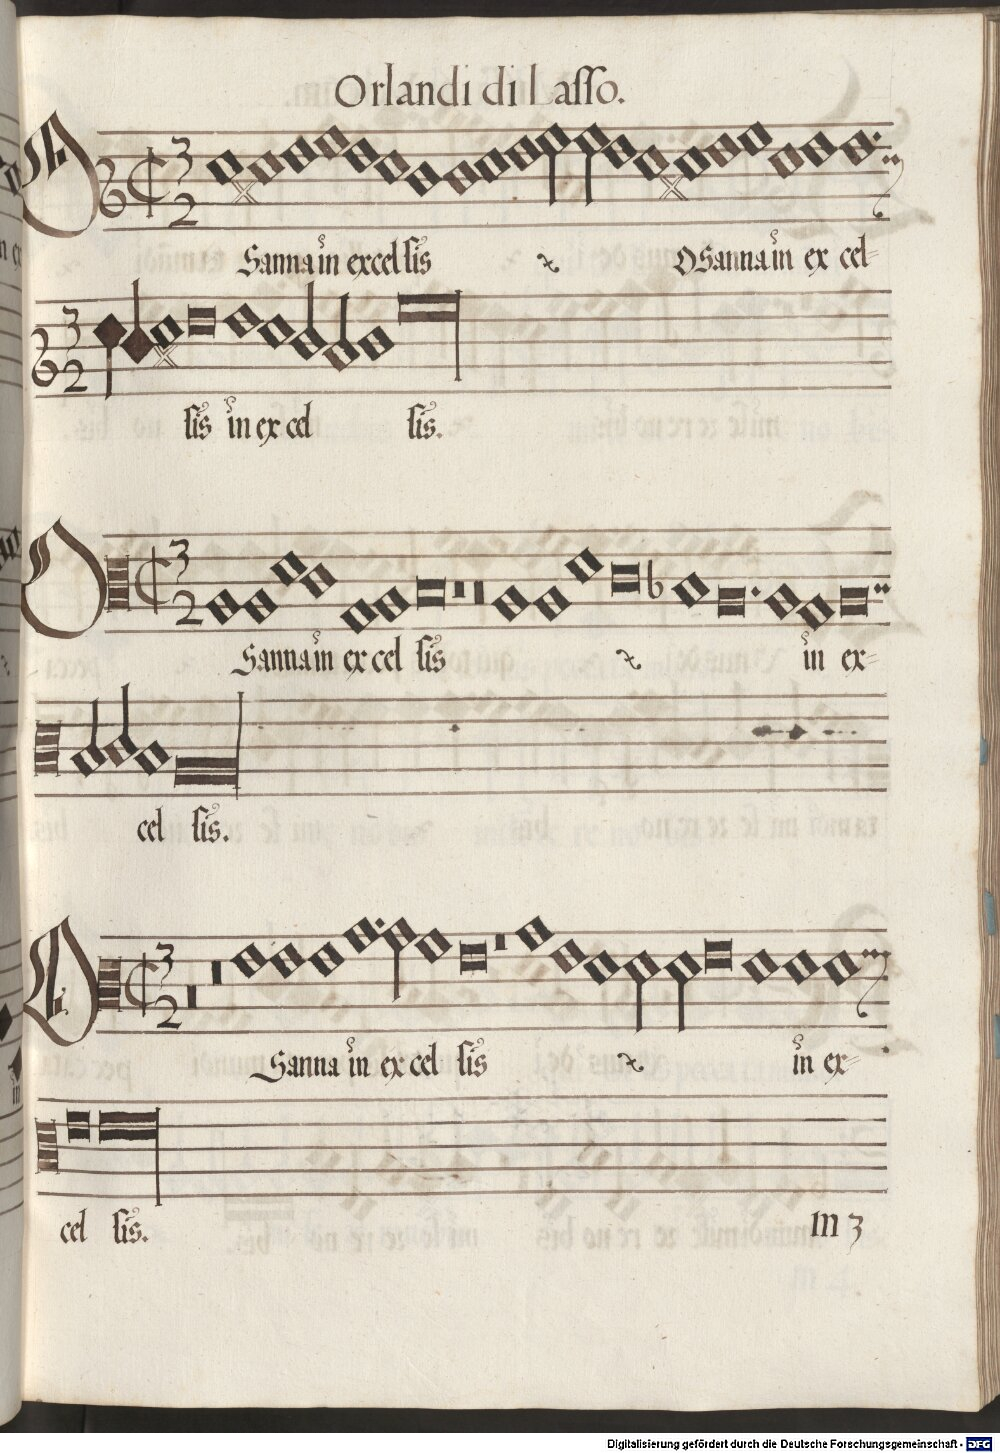 Orlandi di Lasso.
OSanna in excelsis OSanna in ex cel-
sis in ex cel sis.
OSanna in ex cel sis in ex-
cel sis.
OSanna in ex cel sis in ex-
cel sis.
m 3
Digitalisierung gefördert durch die Deutsche Forschungsgemeinschaft - DFG